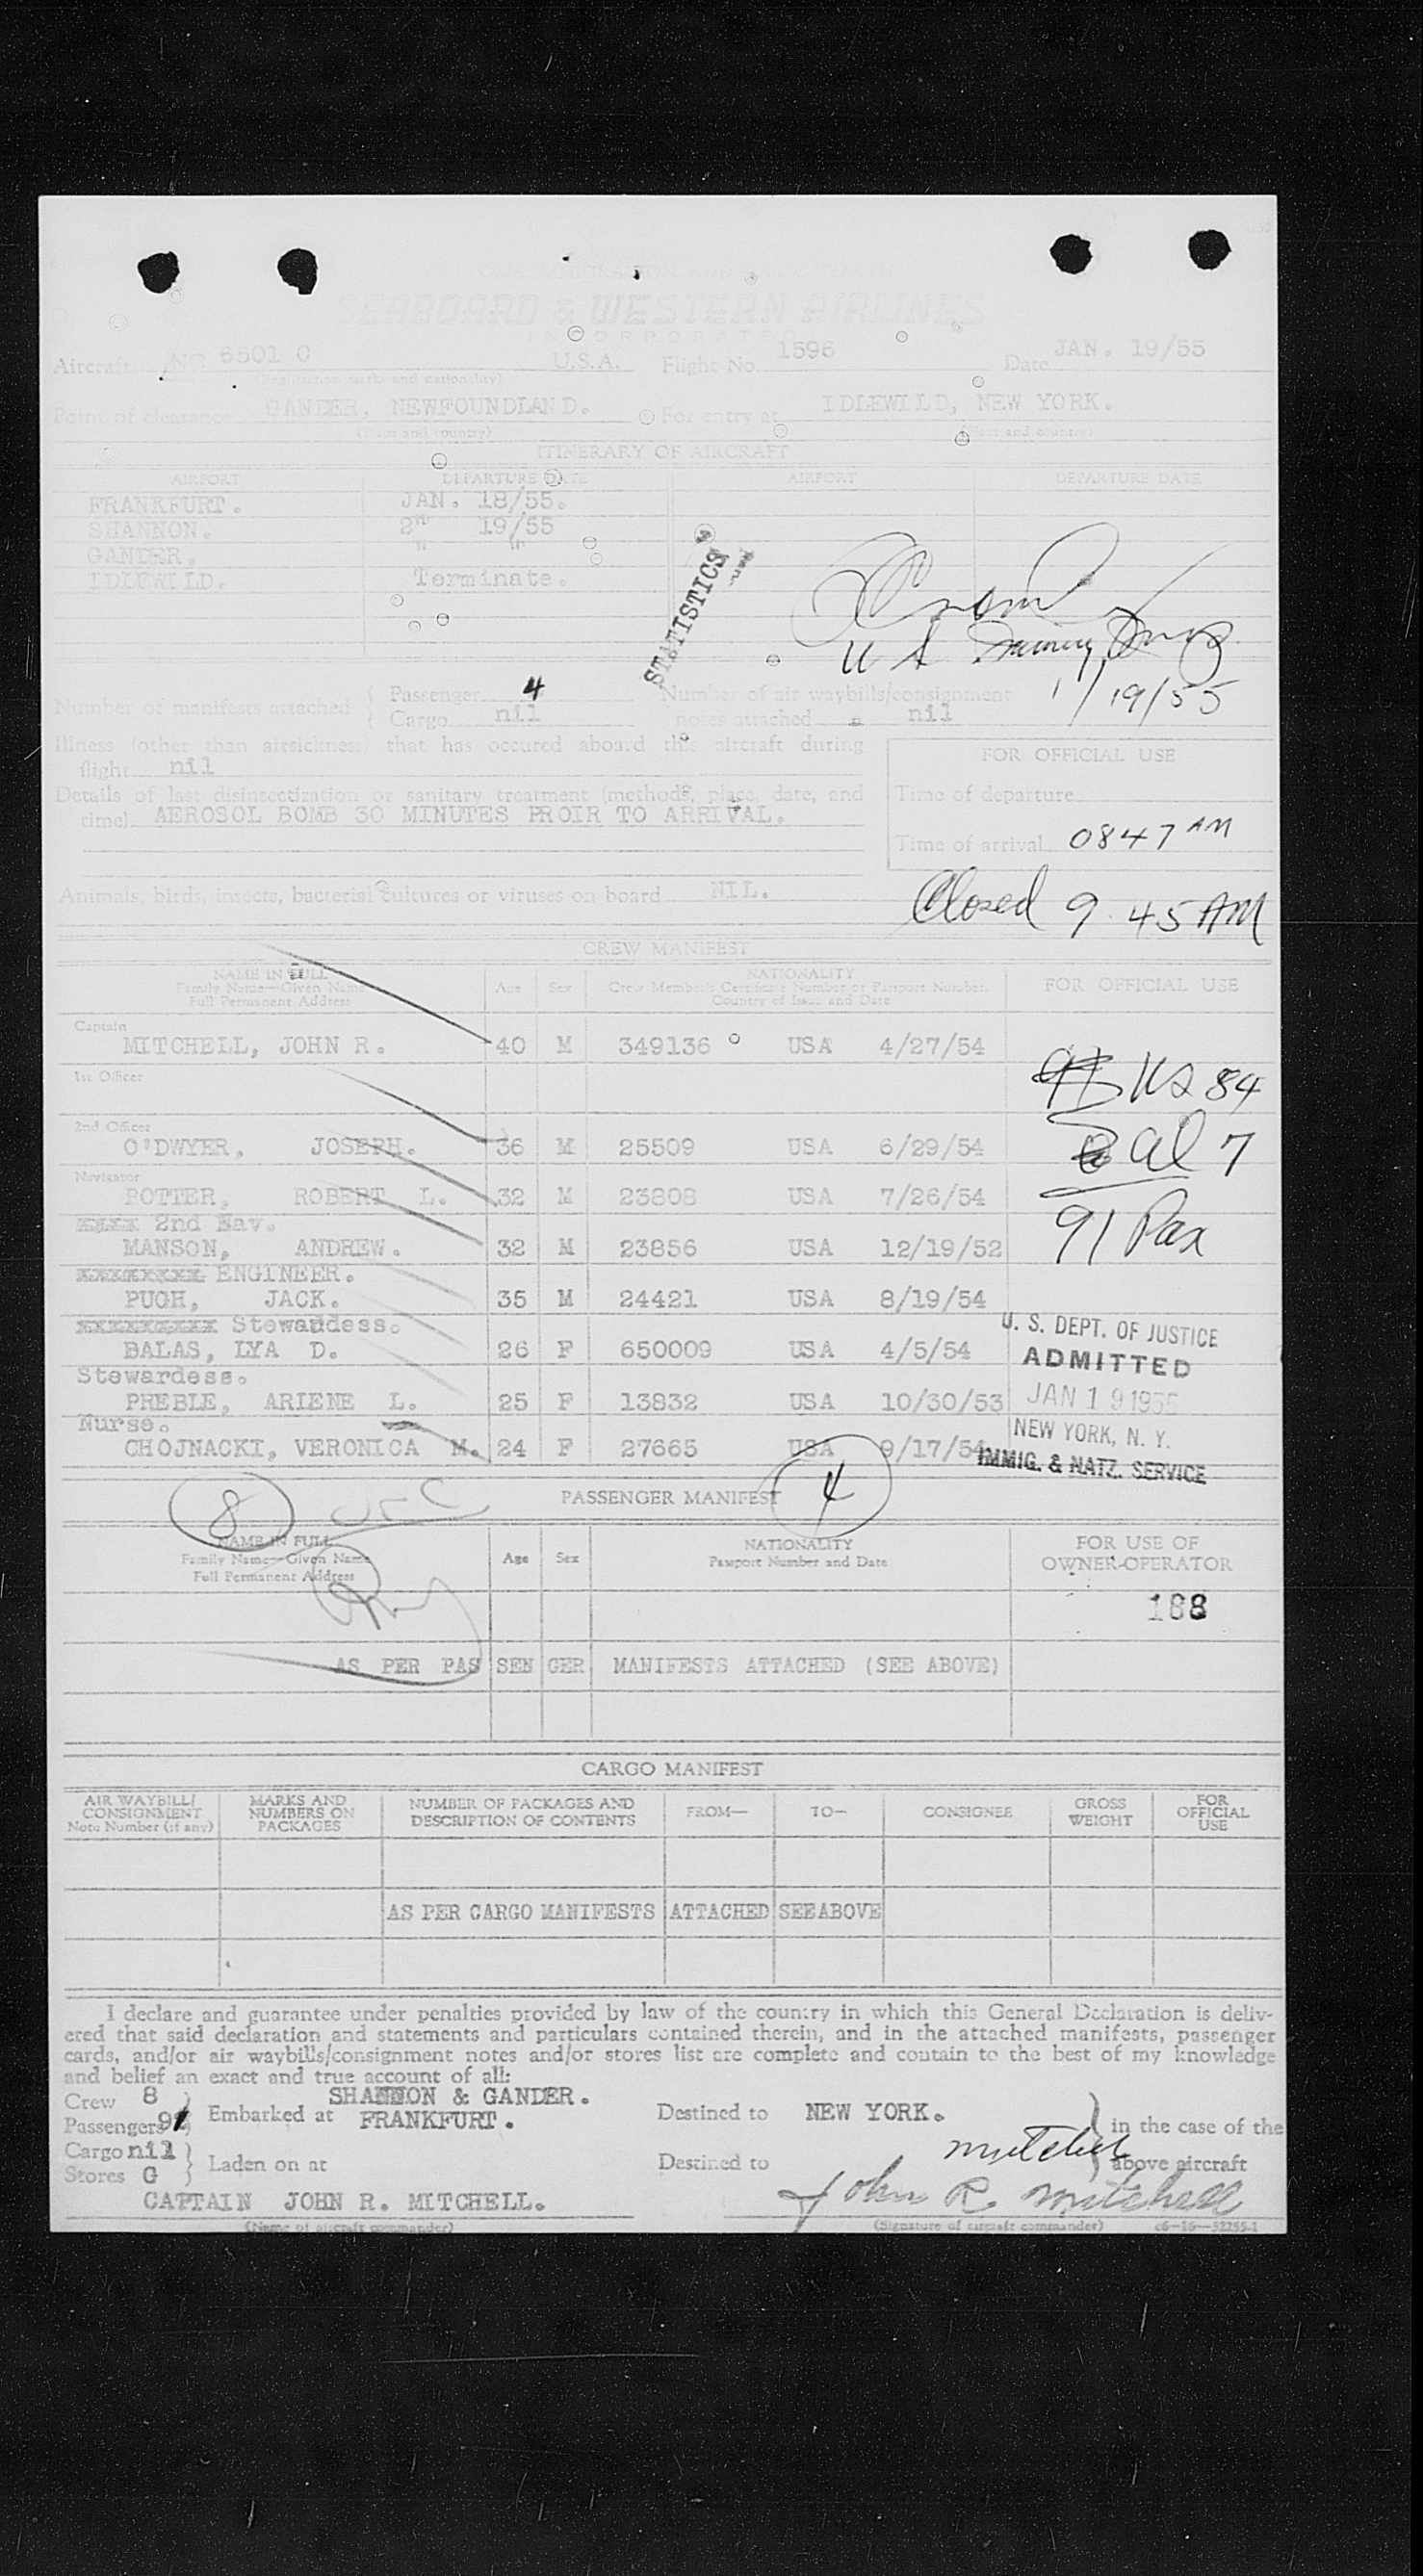 SEABOARD & WESTERN AIRLINES
INCORPORATED
Aircraft NC 6501 C U.S.A. Flight No. 1596 Date JAN. 19/55
(Registration marks and nationality)
Point of clearance GANDER, NEWFOUNDLAND. For entry at IDLEWILD, NEW YORK.
(Place and country) (Place and country)
ITINERARY OF AIRCRAFT
AIRPORT DEPARTURE DATE AIRPORT DEPARTURE DATE
FRANKFURT. JAN. 18/55.
SHANNON. 19/55
GANDER. " "
IDLEWILD. Terminate.
STATISTICS
1/19/55
Number of manifests attached { Passenger 4 Number of air waybills/consignment
Cargo nil notes attached nil
Illness (other than airsickness) that has occured aboard this aircraft during
flight nil
FOR OFFICIAL USE
Details of last disinsectization or sanitary treatment (methods, place, date, and
time) AEROSOL BOMB 30 MINUTES PROIR TO ARRIVAL.
Time of departure
Time of arrival 0847 AM
Animals, birds, insects, bacterial cultures or viruses on board NIL.
Closed 9.45 AM
CREW MANIFEST
NAME IN FULL
Family Name—Given Name
Full Permanent Address
Age Sex
NATIONALITY
Crew Member's Certificate Number or Passport Number,
Country of Issue and Date
FOR OFFICIAL USE
Captain
MITCHELL, JOHN R. 40 M 349136 USA 4/27/54
1st Officer
US 84
2nd Officer
O'DWYER, JOSEPH. 36 M 25509 USA 6/29/54
al 7
Navigator
POTTER, ROBERT L. 32 M 23808 USA 7/26/54
91 Pax
xxxx 2nd Nav.
MANSON, ANDREW. 32 M 23856 USA 12/19/52
xxxxxxxx ENGINEER.
PUGH, JACK. 35 M 24421 USA 8/19/54
xxxxxxxxx Stewaddess.
BALAS, LYA D. 26 F 650009 USA 4/5/54
Stewardess.
PREBLE, ARIENE L. 25 F 13832 USA 10/30/53
Nurse.
CHOJNACKI, VERONICA M. 24 F 27665 USA 9/17/54
U. S. DEPT. OF JUSTICE
ADMITTED
JAN 19 1955
NEW YORK, N. Y.
IMMIG. & NATZ. SERVICE
8
PASSENGER MANIFEST 4
NAME IN FULL
Family Name—Given Name
Full Permanent Address
Age Sex
NATIONALITY
Passport Number and Date
FOR USE OF
OWNER-OPERATOR
188
AS PER PAS SEN GER MANIFESTS ATTACHED (SEE ABOVE)
CARGO MANIFEST
AIR WAYBILL/
CONSIGNMENT
Note Number (if any)
MARKS AND
NUMBERS ON
PACKAGES
NUMBER OF PACKAGES AND
DESCRIPTION OF CONTENTS
FROM— TO— CONSIGNEE
GROSS
WEIGHT
FOR
OFFICIAL
USE
AS PER CARGO MANIFESTS ATTACHED SEE ABOVE
I declare and guarantee under penalties provided by law of the country in which this General Declaration is deliv-
ered that said declaration and statements and particulars contained therein, and in the attached manifests, passenger
cards, and/or air waybills/consignment notes and/or stores list are complete and contain to the best of my knowledge
and belief an exact and true account of all:
Crew 8 SHANNON & GANDER.
Passengers 91 } Embarked at FRANKFURT. Destined to NEW YORK. } in the case of the
Cargo nil mitchell above aircraft
Stores G } Laden on at Destined to
CAPTAIN JOHN R. MITCHELL. John R. Mitchell
(Name of aircraft commander) (Signature of aircraft commander) c6—16—52255-1